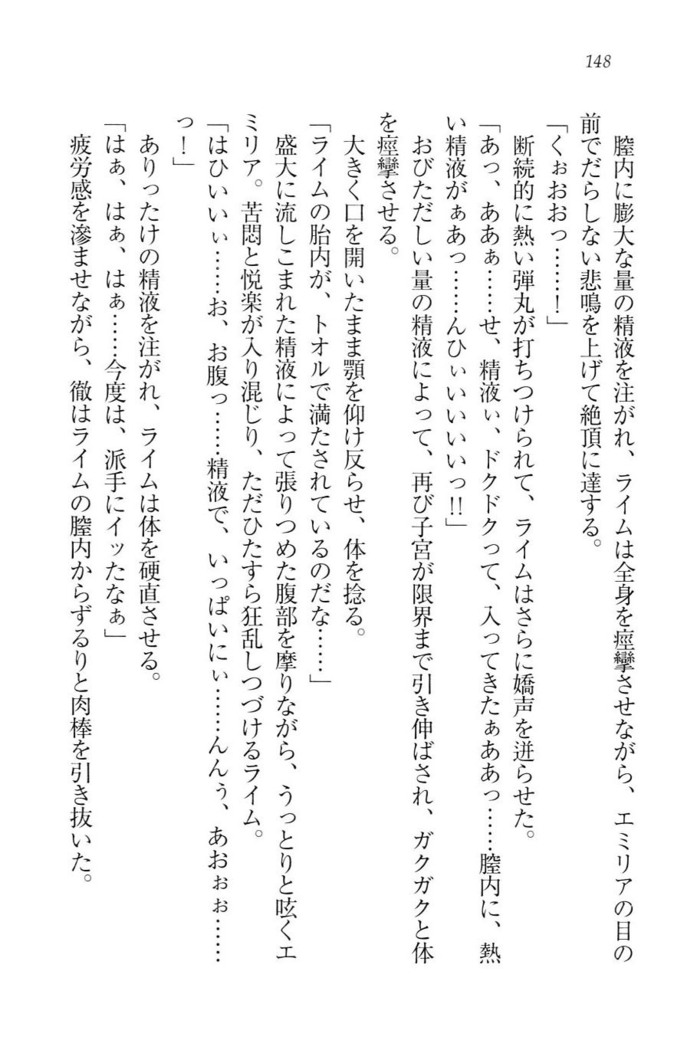 148
膣内に膨大な量の精液を注がれ、ライムは全身を痙攣させながら、エミリアの目の
前でだらしない悲鳴を上げて絶頂に達する。
「くぉおおっ……！」
断続的に熱い弾丸が打ちつけられて、ライムはさらに嬌声を迸らせた。
「あっ、ああぁ……せ、精液ぃ、ドクドクって、入ってきたぁああっ……膣内に、熱
い精液がぁあっ……んひぃいいいいっ!!」
おびただしい量の精液によって、再び子宮が限界まで引き伸ばされ、ガクガクと体
を痙攣させる。
大きく口を開いたまま顎を仰け反らせ、体を捻る。
「ライムの胎内が、トオルで満たされているのだな……」
盛大に流しこまれた精液によって張りつめた腹部を摩りながら、うっとりと呟くエ
ミリア。苦悶と悦楽が入り混じり、ただひたすら狂乱しつづけるライム。
「はひいいぃ……お、お腹っ……精液で、いっぱいにぃ……んんぅ、あおぉぉ……
っ！」
ありったけの精液を注がれ、ライムは体を硬直させる。
「はぁ、はぁ、はぁ……今度は、派手にイッたなぁ」
疲労感を滲ませながら、徹はライムの膣内からずるりと肉棒を引き抜いた。